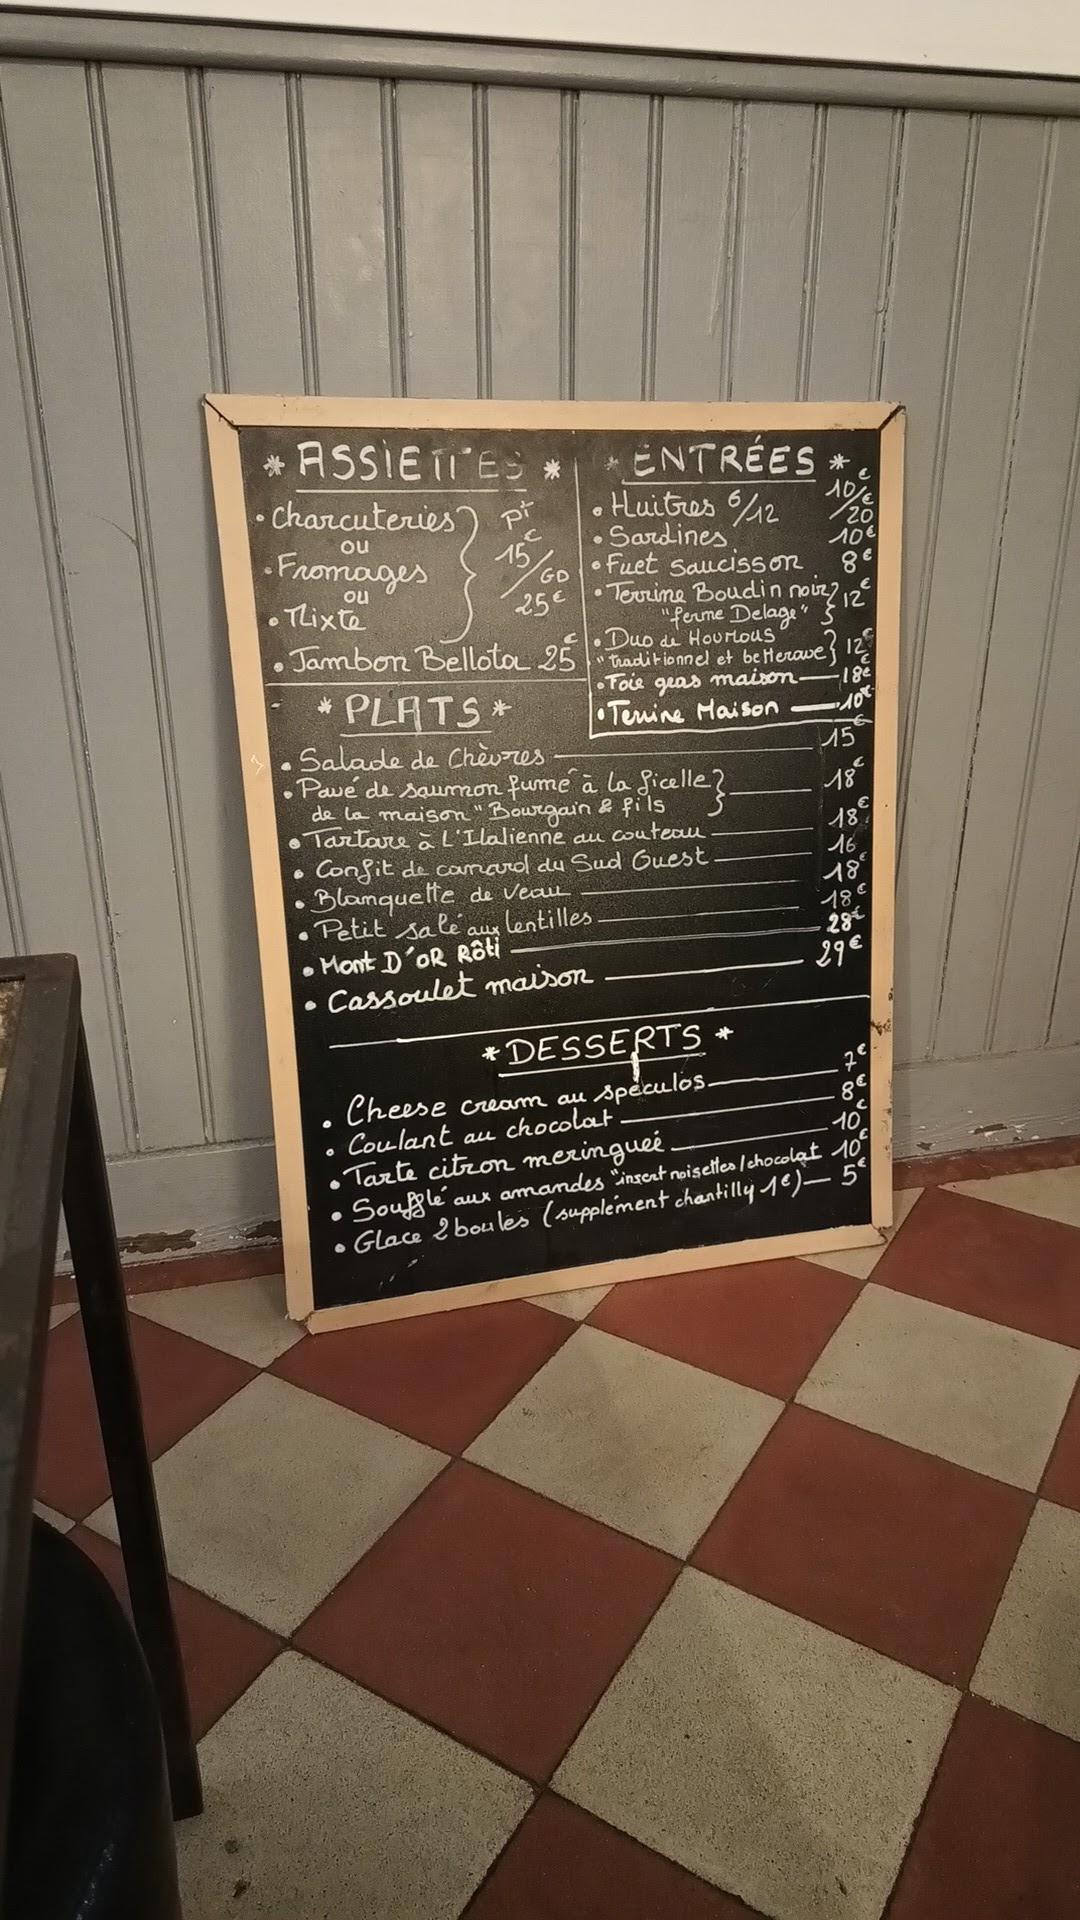 * ASSIETTES *
• Charcuteries
ou
• Fromages
ou
• Mixte
PT
15€/GD
25€
• Jambon Bellota 25€
* ENTRÉES *
• Huitres 6/12 10€/20€
• Sardines 10€
• Fuet saucisson 8€
• Terrine Boudin noir 12€
"ferme Delage"
• Duo de Houmous
"traditionnel et betterave 12€
• Foie gras maison 18€
• Terrine Maison 10€
* PLATS *
• Salade de Chèvres 15€
• Pavé de saumon fumé à la ficelle 18€
de la maison "Bourgain & fils
• Tartare à L'Italienne au couteau 18€
• Confit de canard du Sud Ouest 16
• Blanquette de veau 18€
• Petit salé aux lentilles 18€
• Mont D'OR Rôti 28€
• Cassoulet maison 29€
* DESSERTS *
• Cheese cream au spéculos 7€
• Coulant au chocolat 8€
• Tarte citron meringueé 10€
• Soufflé aux amandes "insert noisettes/chocolat 10€
• Glace 2 boules (supplément chantilly 1€) 5€